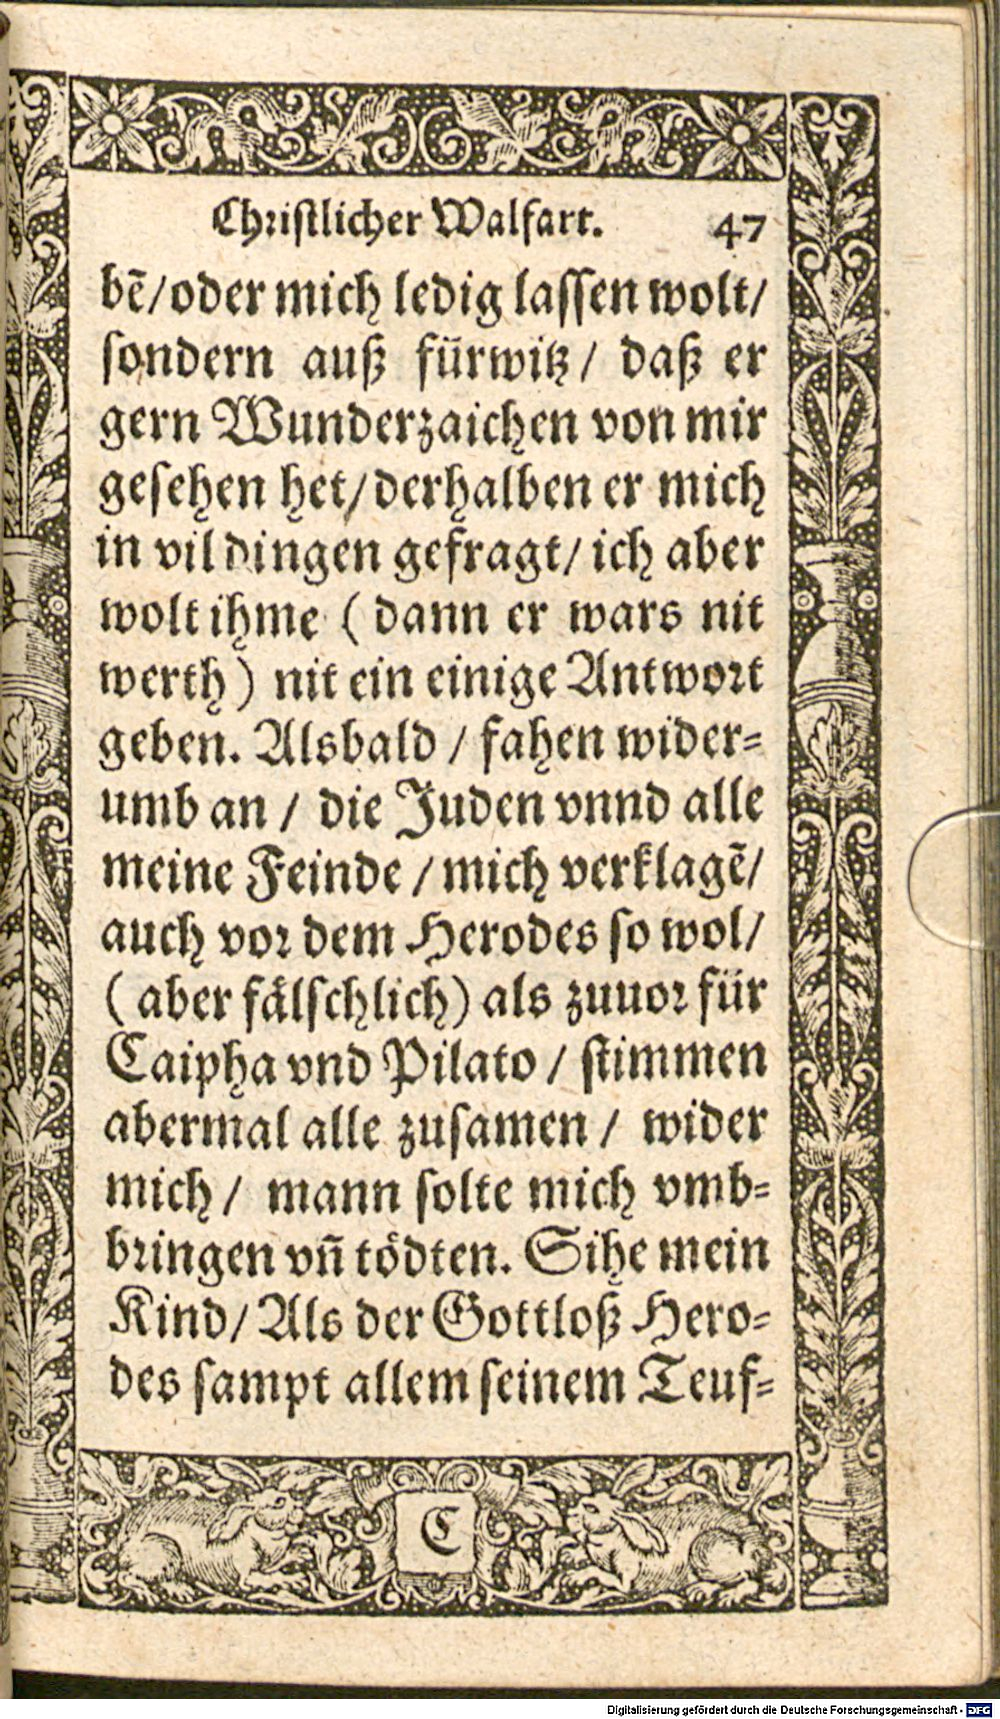 Christlicher Walfart. 47
bē/oder mich ledig lassen wolt/
sondern auß fürwitz/ daß er
gern Wunderzaichen von mir
gesehen het/derhalben er mich
in vil dingen gefragt/ ich aber
wolt ihme (dann er wars nit
werth) nit ein einige Antwort
geben. Alsbald / fahen wider=
umb an / die Juden vnnd alle
meine Feinde / mich verklagē/
auch vor dem Herodes so wol/
(aber fälschlich) als zuuor für
Caipha vnd Pilato / stimmen
abermal alle zusamen / wider
mich / mann solte mich vmb=
bringen vñ tödten. Sihe mein
Kind/ Als der Gottloß Hero=
des sampt allem seinem Teuf=
C
Digitalisierung gefördert durch die Deutsche Forschungsgemeinschaft - DFG